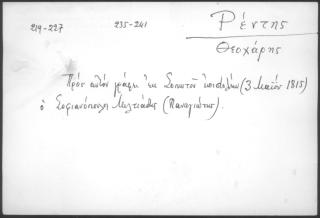 219-227 235-241 Ρέντης
Θεοχάρης
Πρὸς αὐτὸν γράφει ἐκ Σοποτοῦ ἐπιστολὴν (3 Μαΐου 1815)
ὁ Σοφιανόπουλος (Παναγιώτης).